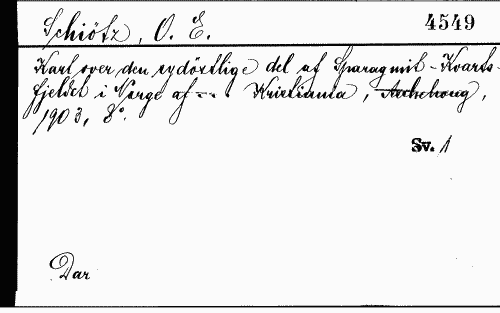 Schiötz, O. E. 4549
Kart over den sydöstlige del af Sparagmit-Kvarts-
fjeldet i Norge af --- Kristiania, Aschehoug,
1903, 8°.
Sv. 1
Dar